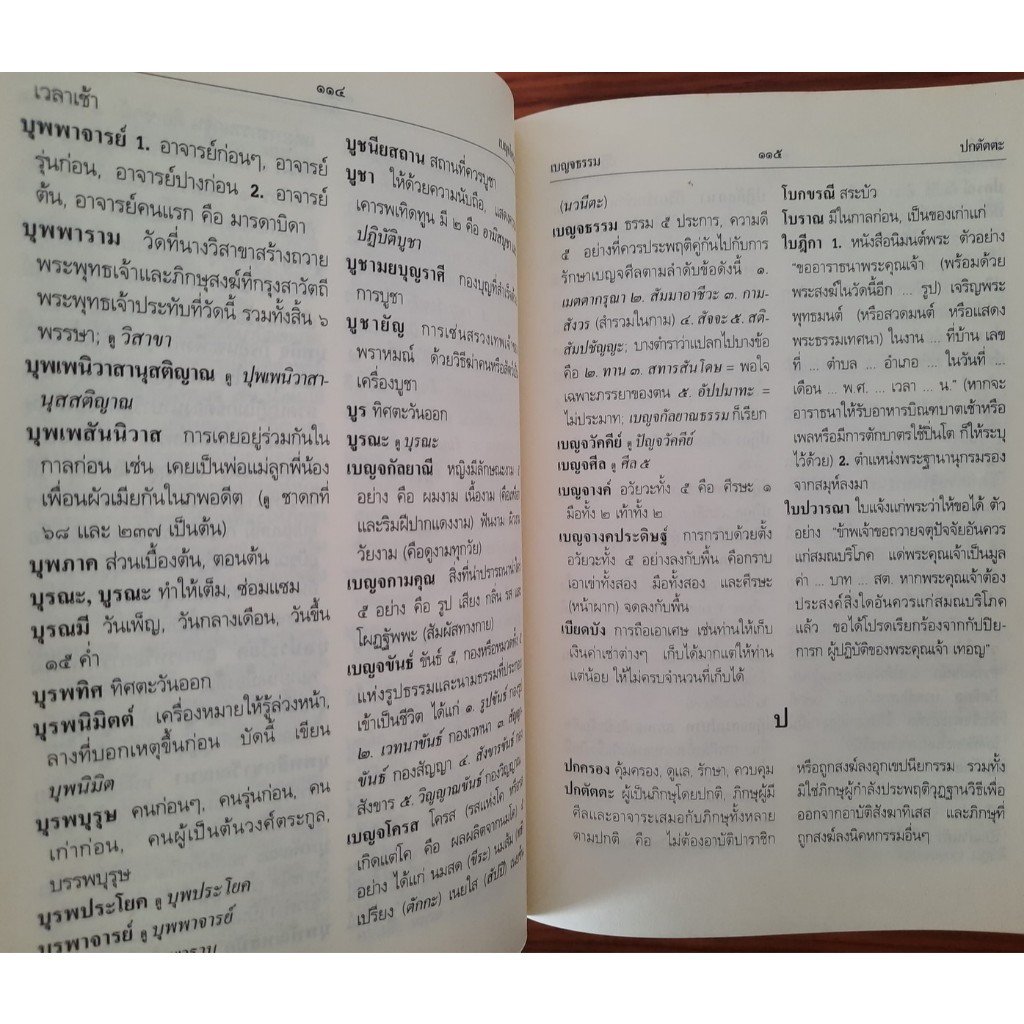 ๑๑๔
เวลาเช้า
บุพพาจารย์ 1. อาจารย์ก่อนๆ, อาจารย์
รุ่นก่อน, อาจารย์ปางก่อน 2. อาจารย์
ต้น, อาจารย์คนแรก คือ มารดาบิดา
บุพพาราม วัดที่นางวิสาขาสร้างถวาย
พระพุทธเจ้าและภิกษุสงฆ์ที่กรุงสาวัตถี
พระพุทธเจ้าประทับที่วัดนี้ รวมทั้งสิ้น ๖
พรรษา; ดู วิสาขา
บุพเพนิวาสานุสติญาณ ดู ปุพเพนิวาสา-
นุสสติญาณ
บุพเพสันนิวาส การเคยอยู่ร่วมกันใน
กาลก่อน เช่น เคยเป็นพ่อแม่ลูกพี่น้อง
เพื่อนผัวเมียกันในภพอดีต (ดู ชาดกที่
๖๘ และ ๒๓๗ เป็นต้น)
บุพภาค ส่วนเบื้องต้น, ตอนต้น
บุรณะ, บูรณะ ทำให้เต็ม, ซ่อมแซม
บุรณมี วันเพ็ญ, วันกลางเดือน, วันขึ้น
๑๕ ค่ำ
บุรพทิศ ทิศตะวันออก
บุรพนิมิตต์ เครื่องหมายให้รู้ล่วงหน้า,
ลางที่บอกเหตุขึ้นก่อน บัดนี้ เขียน
บุพนิมิต
บุรพบุรุษ คนก่อนๆ, คนรุ่นก่อน, คน
เก่าก่อน, คนผู้เป็นต้นวงศ์ตระกูล,
บรรพบุรุษ
บุรพประโยค ดู บุพประโยค
บุรพาจารย์ ดู บุพพาจารย์
บูชนียสถาน สถานที่ควรบูชา
บูชา ให้ด้วยความนับถือ,
เคารพเทิดทูน มี ๒ คือ อามิสบูชา
ปฏิบัติบูชา
บูชามยบุญราศี กองบุญที่สำเร็จด้วย
การบูชา
บูชายัญ การเซ่นสรวงเทพเจ้า
พราหมณ์ ด้วยวิธีฆ่าคนหรือสัตว์
เครื่องบูชา
บูร ทิศตะวันออก
บูรณะ ดู บุรณะ
เบญจกัลยาณี หญิงมีลักษณะงาม
อย่าง คือ ผมงาม เนื้องาม (คือเหงือก
และริมฝีปากแดงงาม) ฟันงาม ผิวงาม
วัยงาม (คือดูงามทุกวัย)
เบญจกามคุณ สิ่งที่น่าปรารถนาน่าใคร่
๕ อย่าง คือ รูป เสียง กลิ่น รส และ
โผฏฐัพพะ (สัมผัสทางกาย)
เบญจขันธ์ ขันธ์ ๕, กองหรือหมวดทั้ง ๕
แห่งรูปธรรมและนามธรรมที่ประกอบ
เข้าเป็นชีวิต ได้แก่ ๑. รูปขันธ์ กองรูป
๒. เวทนาขันธ์ กองเวทนา ๓. สัญญา-
ขันธ์ กองสัญญา ๔. สังขารขันธ์ กอง
สังขาร ๕. วิญญาณขันธ์ กองวิญญาณ
เบญจโครส โครส (รสแห่งโค หรือรส
เกิดแต่โค คือ ผลผลิตจากนมโค) ๕
อย่าง ได้แก่ นมสด (ขีระ) นมส้ม
เปรียง (ตักกะ) เนยใส (สัปปิ) เนยข้น
เบญจธรรม ๑๑๕ ปกตัตตะ
(นวนีตะ)
เบญจธรรม ธรรม ๕ ประการ, ความดี
๕ อย่างที่ควรประพฤติคู่กันไปกับการ
รักษาเบญจศีลตามลำดับข้อดังนี้ ๑.
เมตตากรุณา ๒. สัมมาอาชีวะ ๓. กาม-
สังวร (สำรวมในกาม) ๔. สัจจะ ๕. สติ-
สัมปชัญญะ; บางตำราว่าแปลกไปบางข้อ
คือ ๒. ทาน ๓. สทารสันโดษ = พอใจ
เฉพาะภรรยาของตน ๕. อัปปมาทะ =
ไม่ประมาท; เบญจกัลยาณธรรม ก็เรียก
เบญจวัคคีย์ ดู ปัญจวัคคีย์
เบญจศีล ดู ศีล ๕
เบญจางค์ อวัยวะทั้ง ๕ คือ ศีรษะ ๑
มือทั้ง ๒ เท้าทั้ง ๒
เบญจางคประดิษฐ์ การกราบด้วยตั้ง
อวัยวะทั้ง ๕ อย่างลงกับพื้น คือกราบ
เอาเข่าทั้งสอง มือทั้งสอง และศีรษะ
(หน้าผาก) จดลงกับพื้น
เบียดบัง การถือเอาเศษ เช่นท่านให้เก็บ
เงินค่าเช่าต่างๆ เก็บได้มากแต่ให้ท่าน
แต่น้อย ให้ไม่ครบจำนวนที่เก็บได้
โบกขรณี สระบัว
โบราณ มีในกาลก่อน, เป็นของเก่าแก่
ใบฎีกา 1. หนังสือนิมนต์พระ ตัวอย่าง
“ขออาราธนาพระคุณเจ้า (พร้อมด้วย
พระสงฆ์ในวัดนี้อีก ... รูป) เจริญพระ
พุทธมนต์ (หรือสวดมนต์ หรือแสดง
พระธรรมเทศนา) ในงาน ... ที่บ้าน เลข
ที่ ... ตำบล ... อำเภอ ... ในวันที่ ...
เดือน ... พ.ศ. ... เวลา ... น.” (หากจะ
อาราธนาให้รับอาหารบิณฑบาตเช้าหรือ
เพลหรือมีการตักบาตรใช้ปิ่นโต ก็ให้ระบุ
ไว้ด้วย) 2. ตำแหน่งพระฐานานุกรมรอง
จากสมุห์ลงมา
ใบปวารณา ใบแจ้งแก่พระว่าให้ขอได้ ตัว
อย่าง “ข้าพเจ้าขอถวายจตุปัจจัยอันควร
แก่สมณบริโภค แด่พระคุณเจ้าเป็นมูล
ค่า ... บาท ... สต. หากพระคุณเจ้าต้อง
ประสงค์สิ่งใดอันควรแก่สมณบริโภค
แล้ว ขอได้โปรดเรียกร้องจากกัปปิย-
การก ผู้ปฏิบัติของพระคุณเจ้า เทอญ”
ป
ปกครอง คุ้มครอง, ดูแล, รักษา, ควบคุม
ปกตัตตะ ผู้เป็นภิกษุโดยปกติ, ภิกษุผู้มี
ศีลและอาจาระเสมอกับภิกษุทั้งหลาย
ตามปกติ คือ ไม่ต้องอาบัติปาราชิก
หรือถูกสงฆ์ลงอุกเขปนียกรรม รวมทั้ง
มิใช่ภิกษุผู้กำลังประพฤติวุฏฐานวิธีเพื่อ
ออกจากอาบัติสังฆาทิเสส และภิกษุที่
ถูกสงฆ์ลงนิคหกรรมอื่นๆ